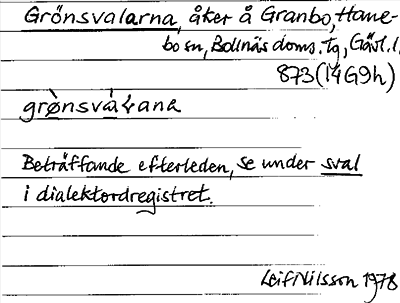 Grönsvalarna, åker å Granbo, Hane-
bo sn, Bollnäs doms. tg, Gävl. l.
873 (14G9h)
grø̀nsvàɽana
Beträffande efterleden, se under sval
i dialektordregistret.
Leif Nilsson 1978